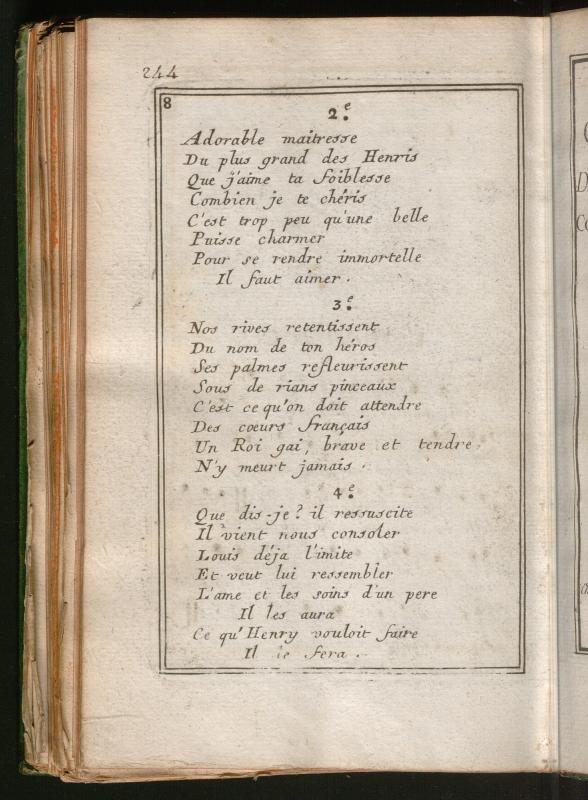 244
8
2.e
Adorable maitresse
Du plus grand des Henris
Que j'aime ta foiblesse
Combien je te chéris
C'est trop peu qu'une belle
Puisse charmer
Pour se rendre immortelle
Il faut aimer.
3.e
Nos rives retentissent
Du nom de ton héros
Ses palmes refleurissent
Sous de rians pinceaux
C'est ce qu'on doit attendre
Des coeurs français
Un Roi gai, brave et tendre
N'y meurt jamais.
4.e
Que dis-je? il ressuscite
Il vient nous consoler
Louis déja l'imite
Et veut lui ressembler
L'ame et les soins d'un pere
Il les aura
Ce qu'Henry vouloit faire
Il le fera.